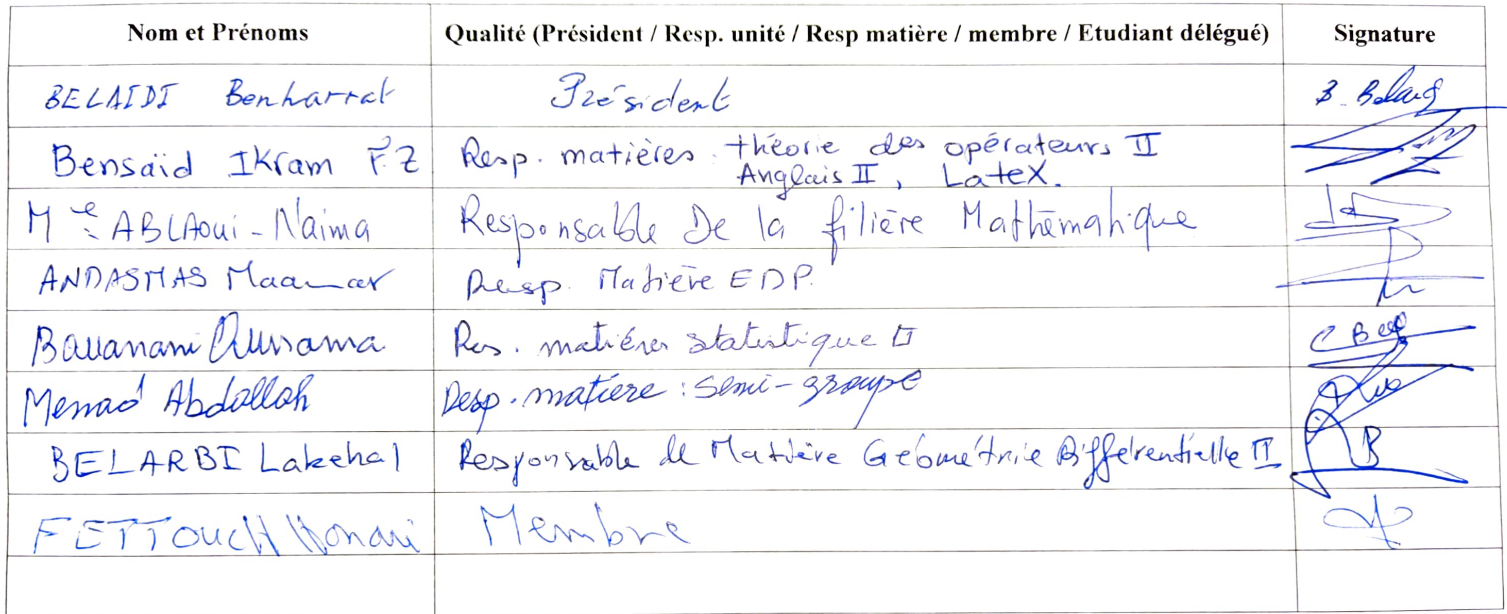 Nom et Prénoms Qualité (Président / Resp. unité / Resp matière / membre / Etudiant délégué) Signature
BELAIDI Benharrat Président B. Belaidi
Bensaïd IKram F.Z Resp. matières : théorie des opérateurs II
Anglais II, LateX.
Mme ABLAoui - Naima Responsable De la filière Mathématique
ANDASMAS Maamar Resp. Matière EDP.
Bouanani Oussama Res. matiéres statistique II
Menad Abdallah Resp. matière : semi-groupe
BELARBI Lakehal Responsable de Matière Géométrie Différentielle II B
FETTOUCH Houari Membre